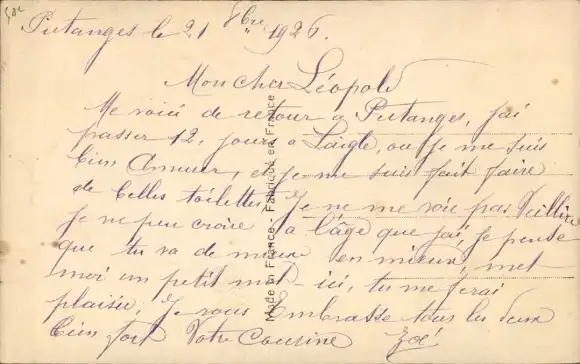 Putanges le 21 8bre 1926.
Mon cher Léopold
Me voici de retour a Putanges, j'ai
passer 12, jours a Laigle, ou je me suis
bien Amuser, et je me suis fait faire
de belles toilettes, Je ne me voie pas Veillire
Je ne peu croire a l'âge que j'ai, Je pense
que tu va de mieux en mieux, met
moi un petit mot - ici, tu me ferai
plaisir, Je vous Embrasse tous les deux
bien fort Votre Cousine Zoé
Made in France - Fabriqué en France